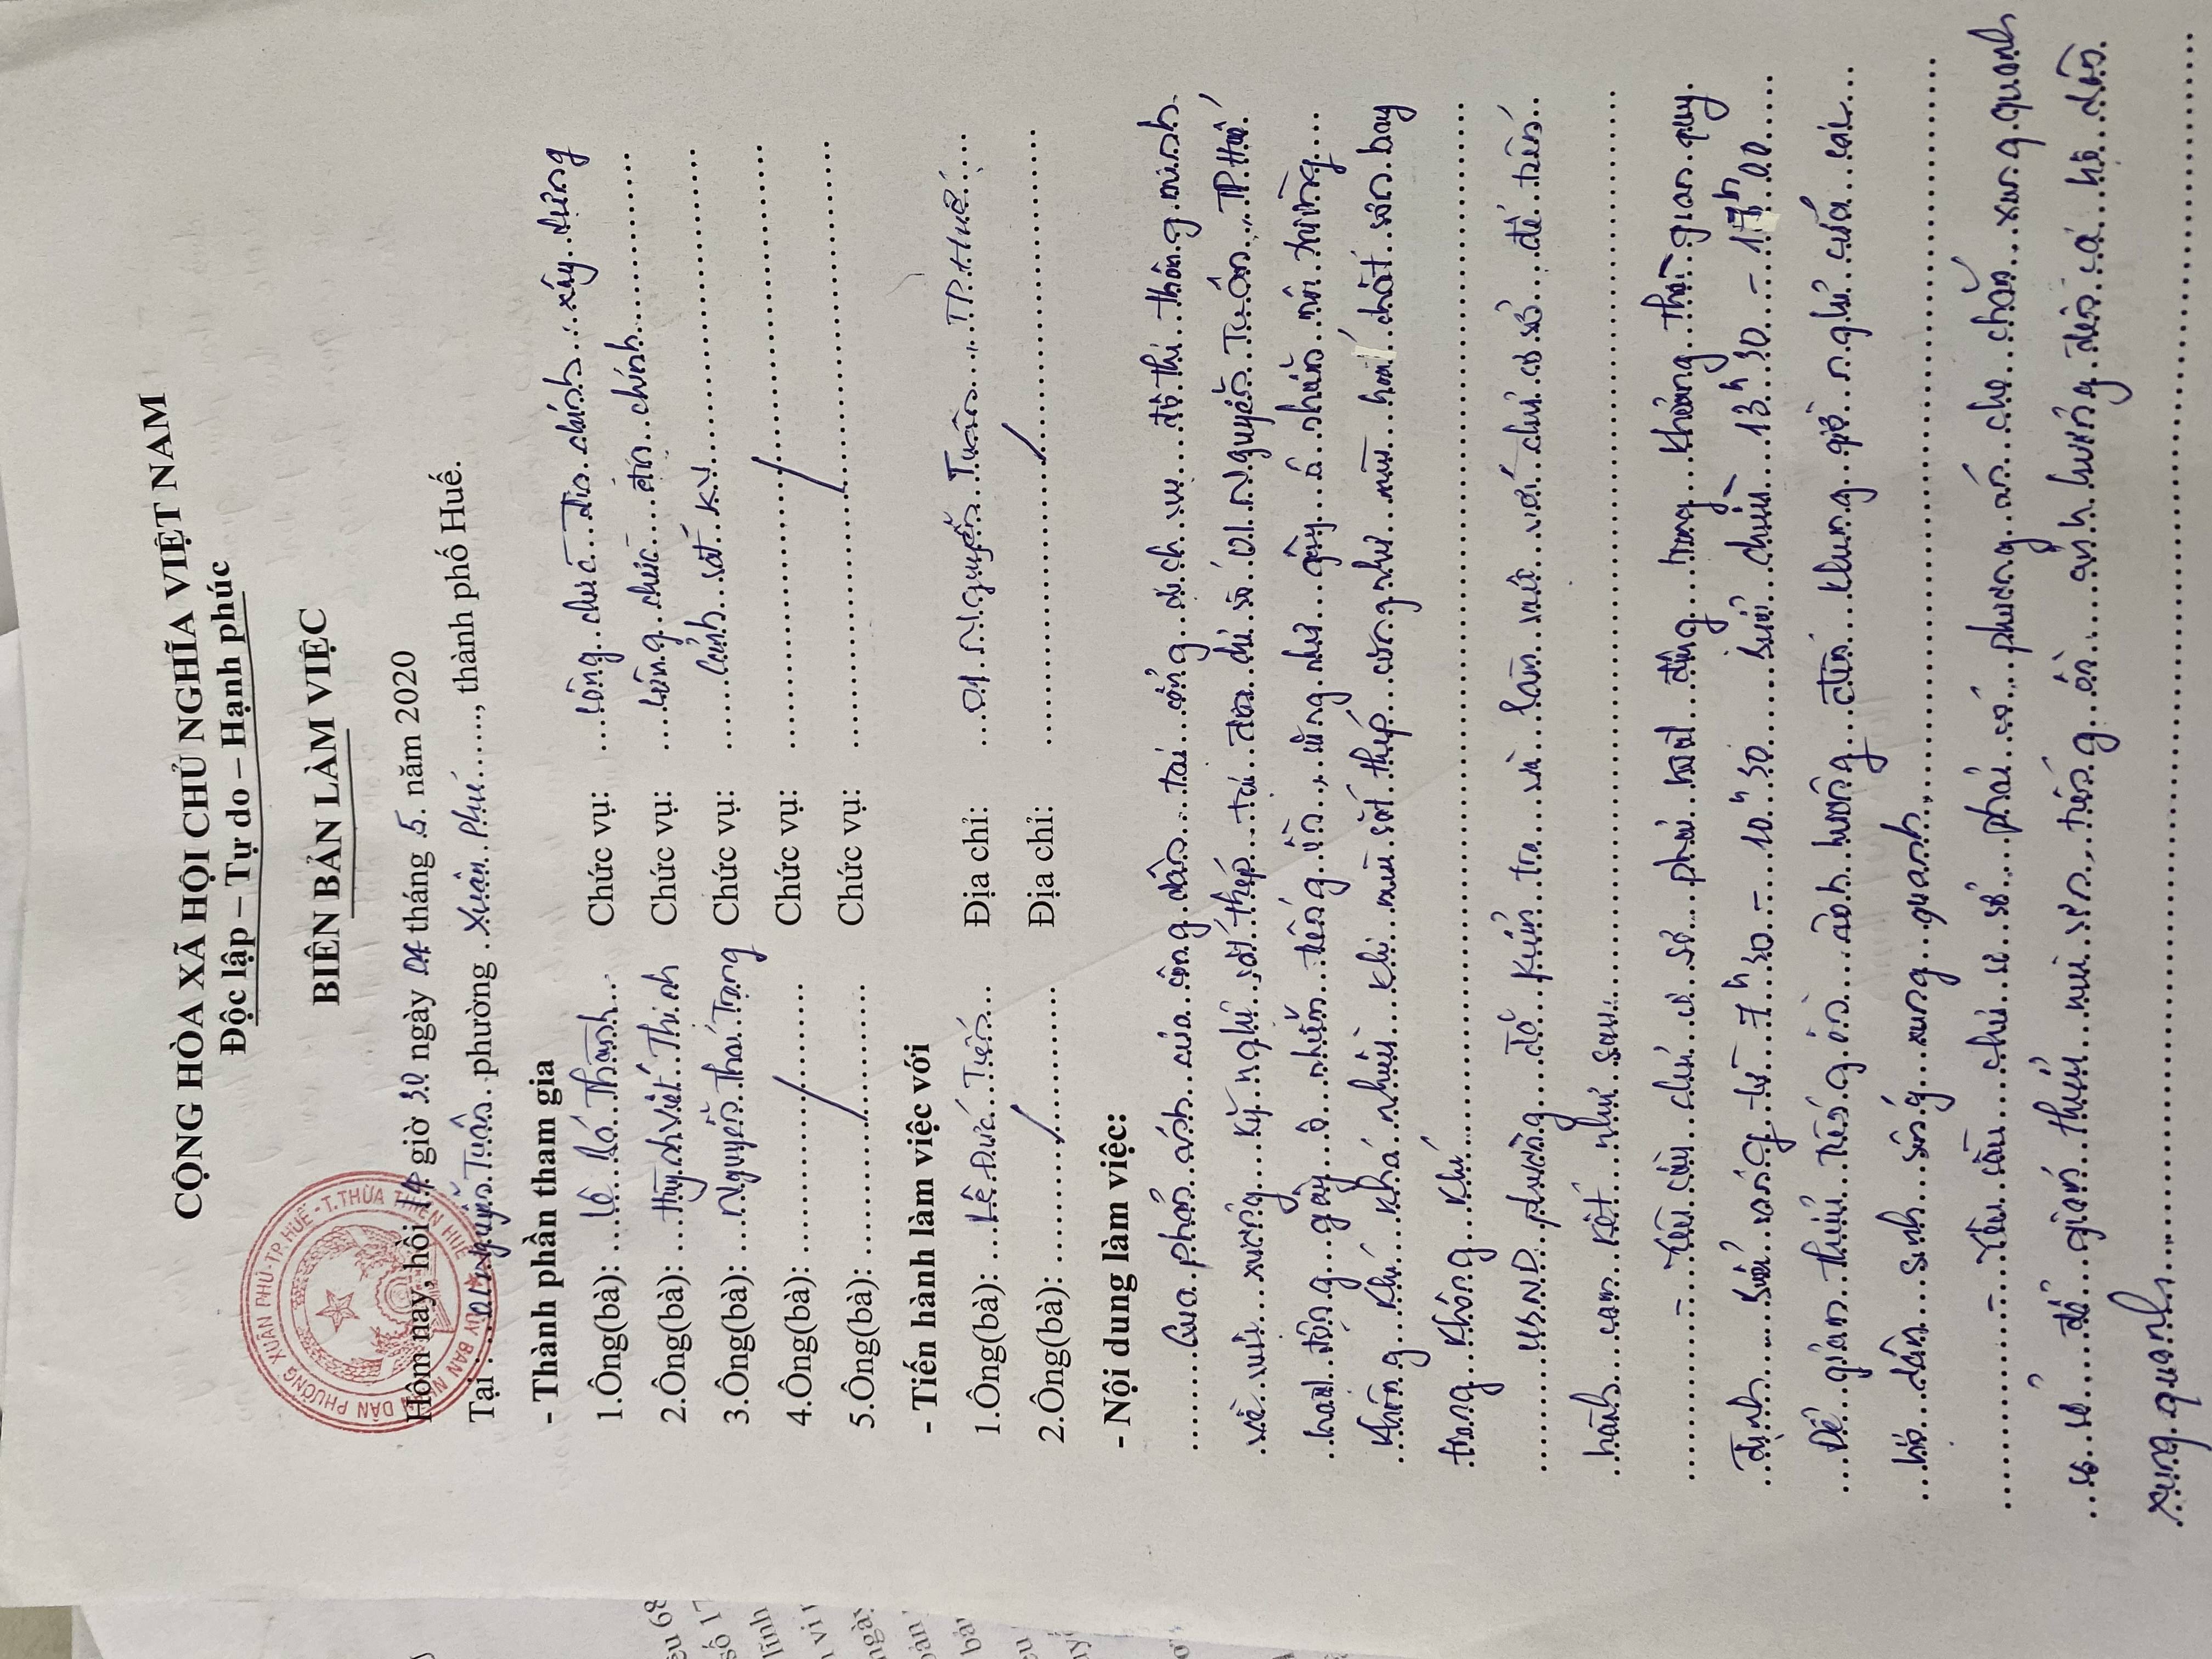 CỘNG HÒA XÃ HỘI CHỦ NGHĨA VIỆT NAM
Độc lập – Tự do – Hạnh phúc
BIÊN BẢN LÀM VIỆC
Hôm nay, hồi 14 giờ 30 ngày 04 tháng 5. năm 2020
Tại: 01 Nguyễn Tuân. phường Xuân Phú......, thành phố Huế.
- Thành phần tham gia
1.Ông(bà): Lê Bá Thành Chức vụ: Công chức Địa chính xây dựng
2.Ông(bà): Huỳnh Viết Thịnh Chức vụ: Công chức địa chính
3.Ông(bà): Nguyễn Thái Trọng Chức vụ: Cảnh sát KV
4.Ông(bà): Chức vụ:
5.Ông(bà): Chức vụ:
- Tiến hành làm việc với
1.Ông(bà): Lê Đức Tiến Địa chỉ: 01 Nguyễn Tuân, TP. Huế
2.Ông(bà): Địa chỉ:
- Nội dung làm việc:
Qua phản ánh của công dân tại cổng dịch vụ đô thị thông minh
về việc xưởng kỹ nghệ sắt thép tại địa chỉ số 01 Nguyễn Tuân, TP Huế
hoạt động gây ô nhiễm tiếng ồn, cũng như gây ô nhiễm môi trường
không khí khá nhiều khi mài sắt thép cũng như mùi hoá chất sơn bay
trong không khí
UBND phường đã kiểm tra và làm việc với chủ cơ sở để tiến
hành cam kết như sau
- Yêu cầu chủ cơ sở phải hoạt động trong khoảng thời gian quy
định buổi sáng từ 7h30 - 10h30 buổi chiều 13h30 - 17h00
Để giảm thiểu tiếng ồn ảnh hưởng đến khung giờ nghỉ của các
hộ dân sinh sống xung quanh
- Yêu cầu chủ cơ sở phải có phương án che chắn xung quanh
cơ sở để giảm thiểu mùi sơn, tiếng ồn ảnh hưởng đến các hộ dân
xung quanh
ỦY BAN NHÂN DÂN PHƯỜNG XUÂN PHÚ-TP. HUẾ - T.THỪA THIÊN HUẾ